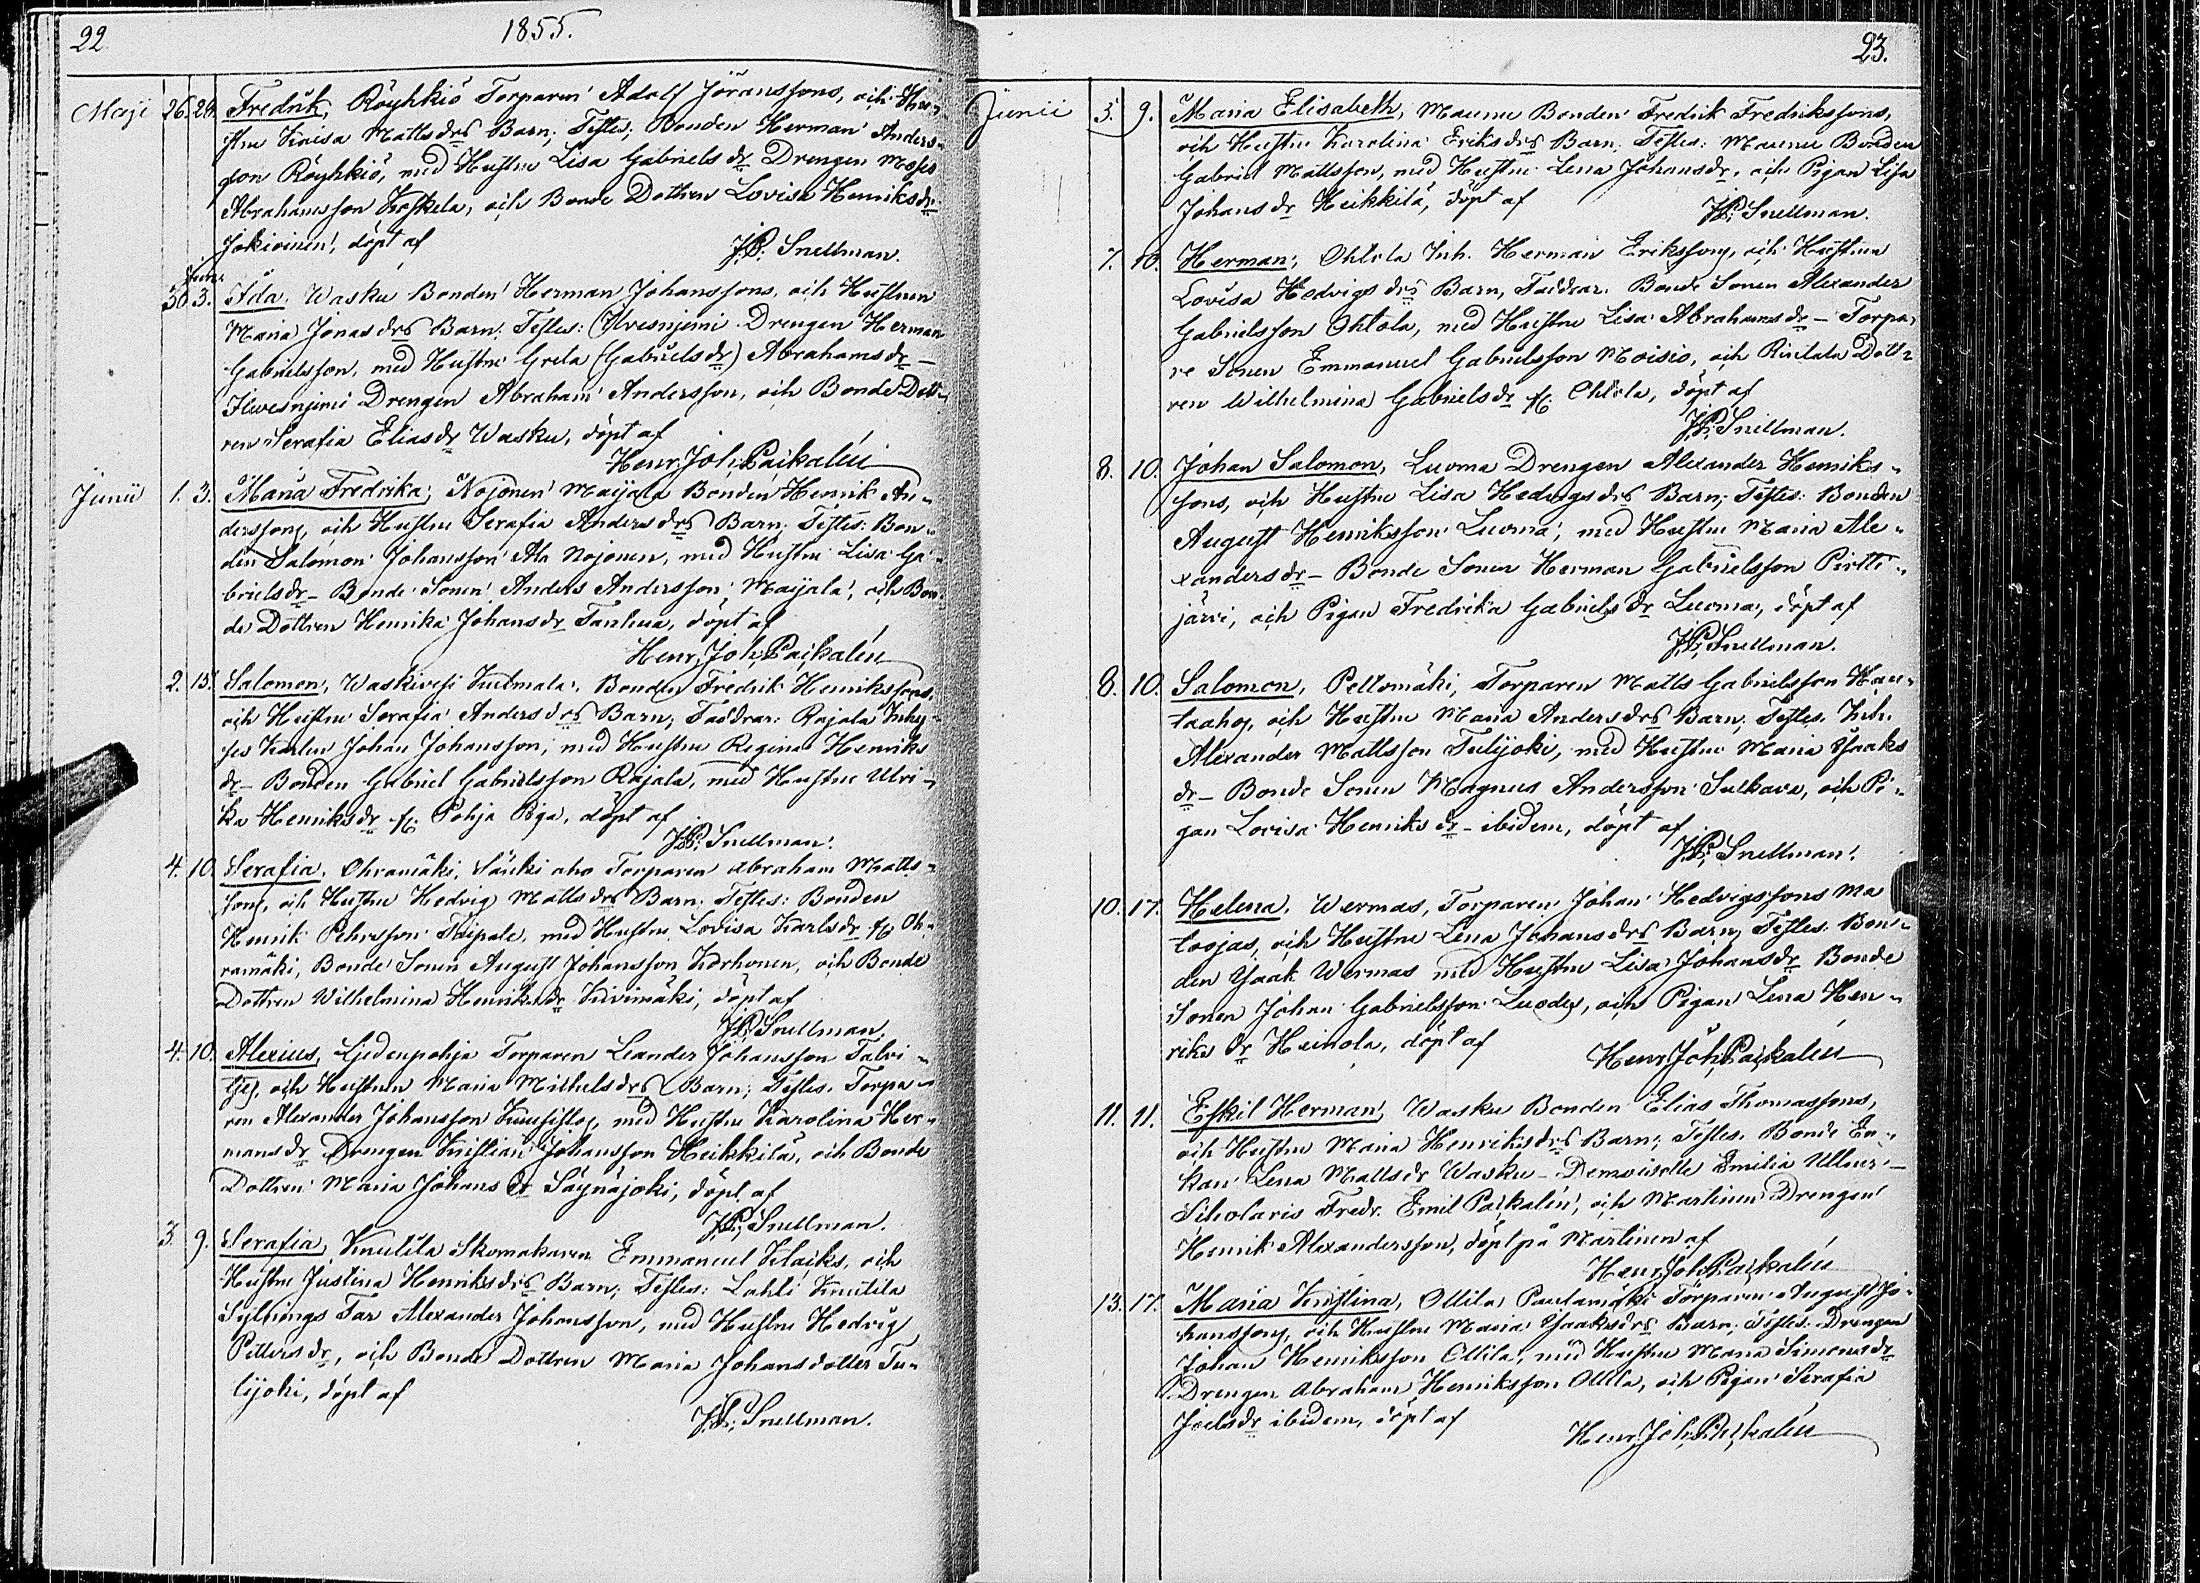 22
1855.
Maji 26. 28. Fredrik, Röyhkiö Torparen Adolf Jöranssons, och Hu-
strn Kaisa Mattsdrs Barn; Testes; Bonden Herman Anders-
son Röyhkiö, med Hustrn Lisa Gabrielsdr Drengen Moses
Abrahamsson Koskela, och Bonde Dottren Lovisa Henriksdr
Jokivinen, döpt af
J.P. Snellman.
Junii
30. 3. Ida. Wasku Bonden Herman Johanssons, och Hustrun
Maria Jonasdrs Barn. Testes: Drengen Herman
Gabrielsson, med Hustrn Greta (Gabrielsdr) Abrahamsdr –
Drengen Abraham Andersson, och Bonde Dott-
ren Serafia Eliasdr Wasku, döpt af
Henr. Joh. Paikalén
Junii 1. 3. Maria Fredrika, Nojonen Maijala Bonden Henrik An-
derssons, och Hustrn Serafia Andersdrs Barn; Testes: Bon-
den Salomon Johansson Ala Nojonen, med Hustrn Lisa Ga-
brielsdr – Bonde Sonen Anders Andersson, Maijala, och Bon-
de Dottren Henrika Johansdr Tanhua, döpt af
Henr. Joh. Paikalén
2. 13. Salomon, Waskivesi Bonden Fredrik Henrikssons,
och Hustrn Serafia Andersdrs Barn; Faddrar: Rajala Inhy-
ses Karlen Johan Johansson, med Hustrn Regina Henriks
dr – Bonden Gabriel Gabrielsson Rajala, med Hustrn Ulri-
ka Henriksdr fr. Pohja döpt af
J.P. Snellman.
4. 10. Serafia. Ohramäki, Torparen Abraham Matts-
sons, och Hustrn Hedvig Mattsdrs Barn. Testes: Bonden
Henrik Pehrsson med Hustrn Lovisa Karlsdr fr. Oh-
ramäki, Bonde Sonen August Johansson Korhonen, och Bonde
Dottren Wilhelmina Henriksdr Kivimäki, döpt af
J.P. Snellman.
4. 10. Alexius, Torparen Leander Johansson Talvi-
och Hustrun Maria Michelsdrs Barn; Testes. Torpa-
ren Alexander Johansson med Hustrn Karolina Her-
mansdr Drengen Kristian Johansson Heikkilä, och Bonde
Dottren Maria Johansdr Säynäjoki, döpt af
J.P. Snellman.
3. 9. Serafia, Knutila Skomakaren Emmanuel och
Hustrn Justina Henriksdrs Barn; Testes: Lahti Knutila
Sytnings Far Alexander Johansson, med Hustrn Hedvig
Pettersdr, och Bonde Dottren Maria Johansdotter Tu-
lijoki, döpt af
J.P. Snellman.
23.
Junii 5. 9. Maria Elisabeth, Maunu Bonden Fredrik Fredrikssons,
och Hustrn Karolina Eriksdrs Barn; Testes: Maunu Bonden
Gabriel Mattsson, med Hustrn Lena Johansdr, och Pigan Lisa
Johansdr Heikkilä, döpt af
J.P. Snellman.
7. 10. Herman; Ohtola Inh. Herman Erikssons, och Hustrun
Lovisa Hedvigsdrs Barn, Faddrar. Bonde Sonen Alexander
Gabrielsson Ohtola, med Hustrn Lisa Abrahamsdr – Torpa-
re Sonen Emmanuel Gabrielsson Moisio, och Dott-
ren Wilhelmina Gabrielsdr fr. Ohtola, döpt af
J.P. Snellman.
8. 10. Johan Salomon, Luoma Drengen Alexander Henriks-
sons, och Hustrn Lisa Hedvigsdrs Barn; Testes: Bonden
August Henriksson Luoma, med Hustrn Maria Ale-
xandersdr – Bonde Sonen Herman Gabrielsson Pirtti-
järvi, och Pigan Fredrika Gabrielsdr Luoma, döpt af
J.P. Snellman.
8. 10. Salomon, Peltomäki, Torparen Matts Gabrielsson Hau-
taaho, och Hustrn Maria Andersdrs Barn; Testes. Inh.
Alexander Mattsson Tulijoki, med Hustrn Maria Isaks
dr – Bonde Sonen Magnus Andersson Sulkava, och Pi-
gan Lovisa Henriksdr – ibidem, döpt af
J.P. Snellman.
10. 17. Helena, Wermas, Torparen Johan Hedvigssons Ma
toojas, och Hustrn Lena Johansdrs Barn; Testes. Bon-
den Isaak Wermas med Hustrn Lisa Johansdr Bonde
Sonen Johan Gabrielsson Luodes, och Pigan Lena Hen-
riksdr Heinola, döpt af
Henr. Joh. Paikalén
11. 11. Eskil Herman, Wasku Bonden Elias Thomassons,
och Hustrn Maria Henriksdrs Barn; Testes. Bonde En-
kan Lena Mattsdr Wasku – Demoiselle Emilia
Scholaris Fredr. Emil Paikalén, och Martinen Drengen
Henrik Alexandersson, döpt på Martinen af
Henr. Joh. Paikalén
13. 17. Maria Kristina, Ollila Torparen August Jo-
hanssons, och Hustrn Maria Isaksdrs Barn; Testes: Drengen
Johan Henriksson Ollila, med Hustrn Maria Simonsdr
Drengen Abraham Henriksson Ollila, och Pigan Serafia
Joelsdr ibidem, döpt af
Henr. Joh. Paikalén